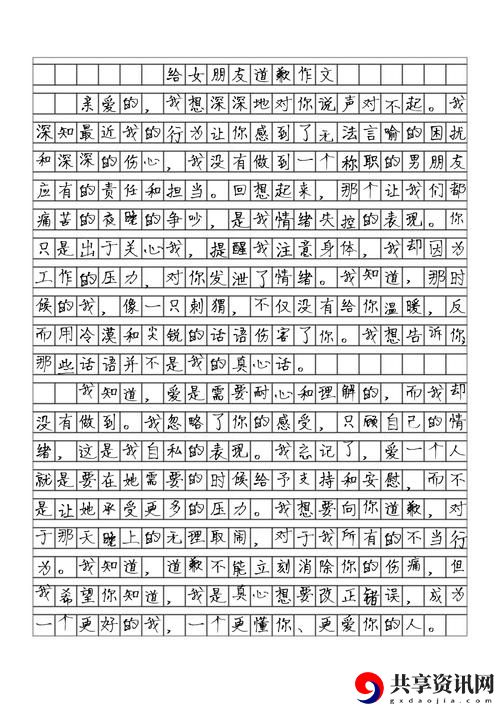 给女朋友道歉作文
亲爱的，我想深深地对你说声对不起。我
深知最近我的行为让你感到了无法言喻的困扰
和深深的伤心，我没有做到一个称职的男朋友
应有的责任和担当。回想起来，那个让我们都
痛苦的夜晚的争吵，是我情绪失控的表现。你
只是出于关心我，提醒我注意身体，我却因为
工作的压力，对你发泄了情绪。我知道，那时
候的我，像一只刺猬，不仅没有给你温暖，反
而用冷漠和尖锐的话语伤害了你。我想告诉你，
那些话语并不是我的真心话。
我知道，爱是需要耐心和理解的，而我却
没有做到。我忽略了你的感受，只顾自己的情
绪，这是我自私的表现。我忘记了，爱一个人
就是要在她需要的时候给予支持和安慰，而不
是让她承受更多的压力。我想要向你道歉，对
于那天晚上的无理取闹，对于我所有的不当行
为。我知道，道歉不能立刻消除你的伤痛，但
我希望你知道，我是真心想要改正错误，成为
一个更好的我，一个更懂你、更爱你的人。
共享资讯网
gxdaojia.com